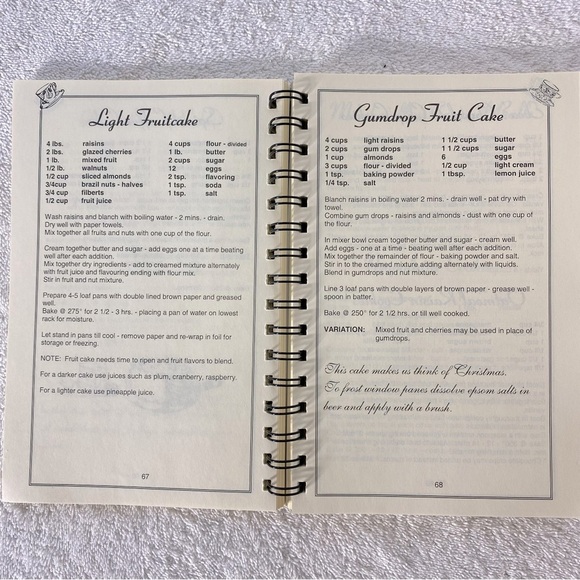 Light Fruitcake
4 lbs. raisins 4 cups flour - divided
2 lbs. glazed cherries 1 lb. butter
1 lb. mixed fruit 2 cups sugar
1/2 lb. walnuts 12 eggs
1/2 cup sliced almonds 2 tsp. flavoring
3/4cup brazil nuts - halves 1 tsp. soda
3/4 cup filberts 1 tsp. salt
1/2 cup fruit juice
Wash raisins and blanch with boiling water - 2 mins. - drain.
Dry well with paper towels.
Mix together all fruits and nuts with one cup of the flour.
Cream together butter and sugar - add eggs one at a time beating
well after each addition.
Mix together dry ingredients - add to creamed mixture alternately
with fruit juice and flavouring ending with flour mix.
Stir in fruit and nut mixture.
Prepare 4-5 loaf pans with double lined brown paper and greased
well.
Bake @ 275° for 2 1/2 - 3 hrs. - placing a pan of water on lowest
rack for moisture.
Let stand in pans till cool - remove paper and re-wrap in foil for
storage or freezing.
NOTE: Fruit cake needs time to ripen and fruit flavors to blend.
For a darker cake use juices such as plum, cranberry, raspberry.
For a lighter cake use pineapple juice.
67
Gumdrop Fruit Cake
4 cups light raisins 1 1/2 cups butter
2 cups gum drops 1 1 /2 cups sugar
1 cup almonds 6 eggs
3 cups flour - divided 1/2 cup light cream
1 tsp. baking powder 1 tbsp. lemon juice
1/4 tsp. salt
Blanch raisins in boiling water 2 mins. - drain well - pat dry with
towel.
Combine gum drops - raisins and almonds - dust with one cup of
the flour.
In mixer bowl cream together butter and sugar - cream well.
Add eggs - one at a time - beating well after each addition.
Mix together the remainder of flour - baking powder and salt.
Stir in to the creamed mixture adding alternately with liquids.
Blend in gumdrops and nut mixture.
Line 3 loaf pans with double layers of brown paper - grease well -
spoon in batter.
Bake @ 250° for 2 hrs. or till well cooked.
VARIATION: Mixed fruit and cherries may be used in place of
gumdrops.
This cake makes us think of Christmas.
To frost window panes dissolve epsom salts in
beer and apply with a brush.
68